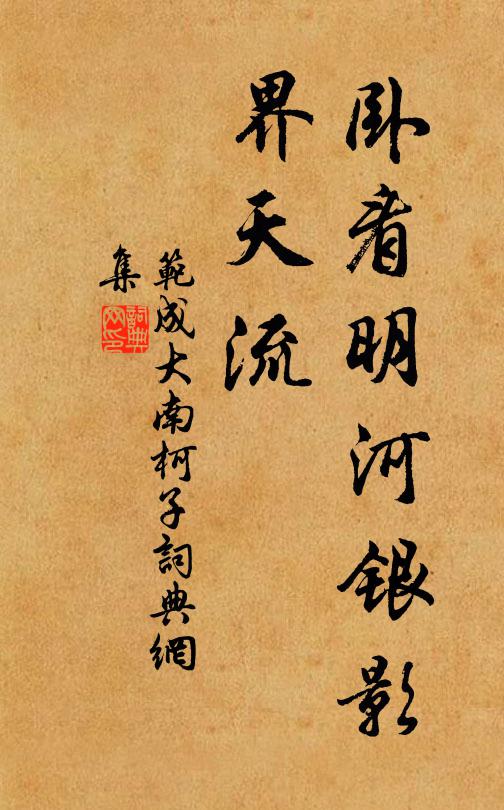 卧看明河银影
界天流
範成大南柯子詞典網
集
詞典
网印